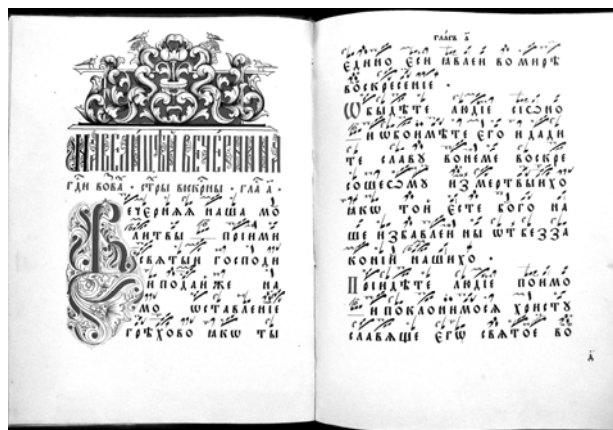 НАВЕЛИЦЕЙ ВЕЧЕРНИ НА
гдⷭ҇и вⷪ҇зва · стⷯ҇ры вⷪ҇скрⷭ҇ны · гла́ а҃ ·
Вечерняя наша мо
литвы прїими
святыи господи
и подаи же на
мо ѡставленїе
грѣхово ꙗкѡ ты
гла́съ а҃
едино еси ꙗвлен во мирѣ
воскресенїе ·
Ѡбыдѣте людїе
и ѡбоимѣте его и дади
те славу вонеме воскре
сошесому изъ мертвыихо
ꙗкѡ той есте бого на
ше избавлен ны ѡт безза
конїй нашихо ·
Прїидѣте людїе поимо
и поклонимося христу
славяще егѡ святое во
а҃